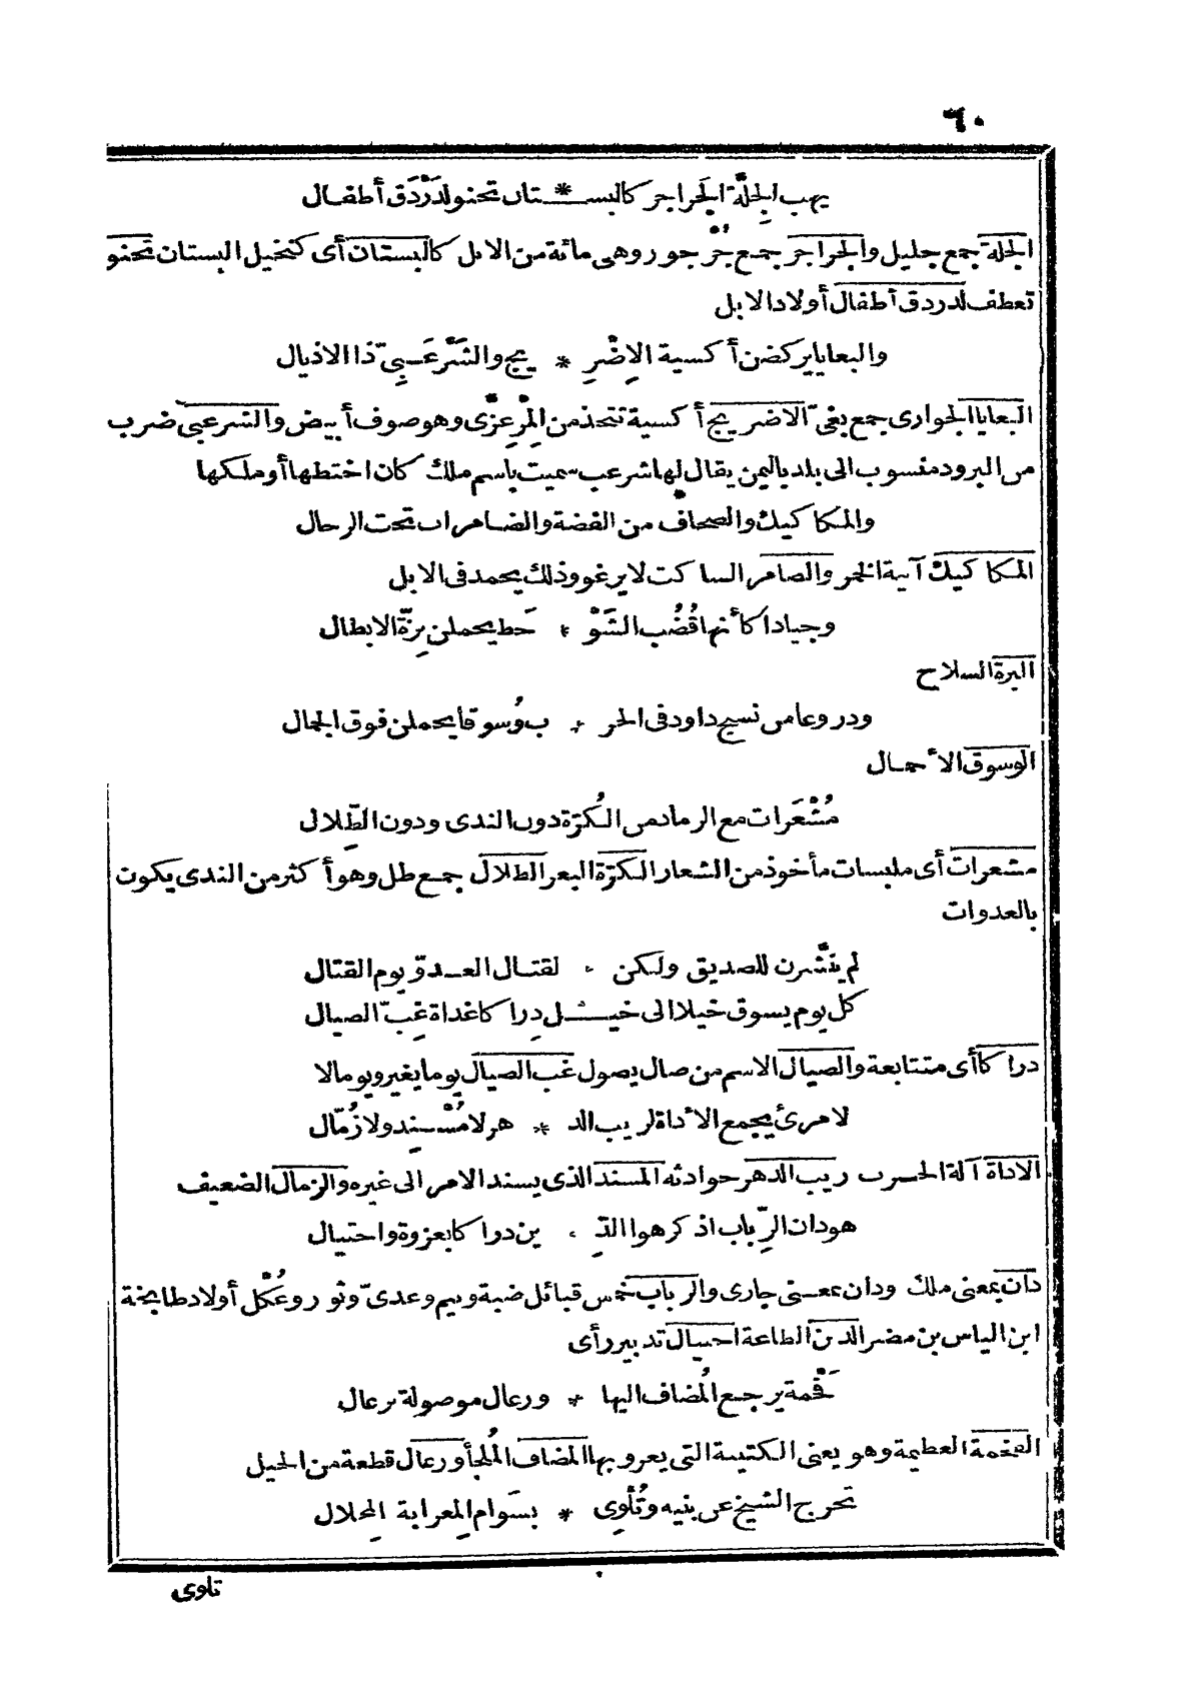 ٦٠
يهب الجِلَّة الجَراجر كالبســـ * ـتان تحنو لدَرْدَق أطفـال
الجلة جمع جليل والجراجر جمـع جُرْجور وهى مائة من الابل كالبستان أى كنخيل البستان تحنو
تعطف لدردق أطفال أولاد الابل
والبغايا يركضن أكسية الاِضْرِ * يج والشَّرْعَـبِىّ ذا الاذيال
البغايا الجوارى جمع بغىّ الاضريج أكسية تتخذ من المِرْعِزَّى وهو صوف أبيض والشرعبى ضرب
من البرود منسوب الى بلد باليمن يقال لها شرعب سميت باسم ملك كان اختطها أو ملكها
والمكاكيك والصحاف من الفضة والضامرات تحت الرحال
المكاكيك آنية الخمر والضامر الساكت لايرغو وذلك يحمد فى الابل
وجيادا كأنها قُضُب الشَّوْ * حَط يحملن بِزّة الابطال
البزة السلاح
ودروعا من نسج داود فى الحر * ب وُسوقا يحملن فوق الجمال
الوسوق الأحمـال
مُشْعَرات مع الرماد من الكُرّة دون الندى ودون الطِّلال
مشعرات أى ملبسات مأخوذ من الشعار الكرّة البعر الطلال جمـع طل وهو أكثر من الندى يكون
بالغدوات
لم ينَشَّرن للصديق ولكن * لقتـال العـدوّ يوم القتال
كل يوم يسوق خيلا الى خيـــل دِراكا غداة غِبّ الصيال
دراكا أى متتابعة والصيال الاسم من صال يصول غب الصيال يوما يغير ويوما لا
لامرئ يجمع الأداة لريب الد * هر لا مُسْـنِد ولا زُمّال
الاداة آلة الحـرب ريب الدهر حوادثه المسند الذى يسند الامر الى غيره والزمال الضعيف
هو دان الرِّباب اذ كرهوا الدِّ * ين دراكا بغزوة واحتيال
دان بمعنى ملك ودان بمعـنى جازى والرباب خمس قبائل ضبة وتيم وعدىّ وثور وعُكْل أولاد طابخة
ابن الياس بن مضر الدين الطاعة احتيال تدبير رأى
فَخْمة يرجـع المُضاف اليها * ورعال موصولة برعال
الفخمة العظيمة وهو يعنى الكتيبة التى يغزو بها المضاف المُلجأ ورعال قطعة من الخيل
تخرج الشيخ عن بنيه وتُلْوِى * بسَوام المِعزابة المِحلال
تلوى